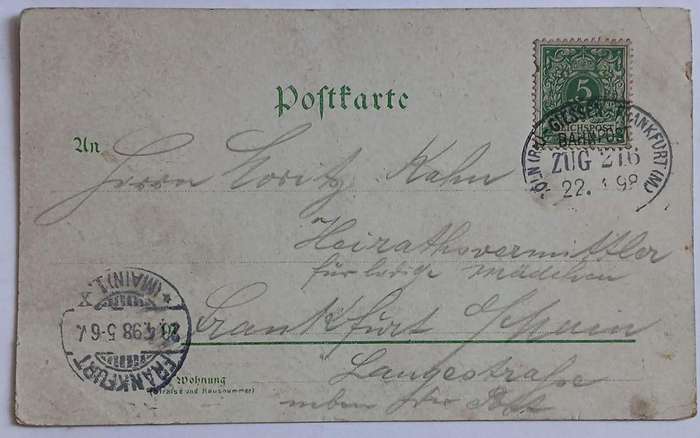 Postkarte
5
REICHSPOST
KÖLN (RH.) GIESSEN FRANKFURT (M.)
BAHNPOST
ZUG 216
22. 4 98
An
Herrn Moritz Kahn
Heirathsvermittler
für ledige Mädchen
Frankfurt Main
Langestraße
neben der Post
* (MAIN) 1.
X
4 98 5-6 N.
FRANKFURT
Wohnung
(Strasse und Hausnummer)